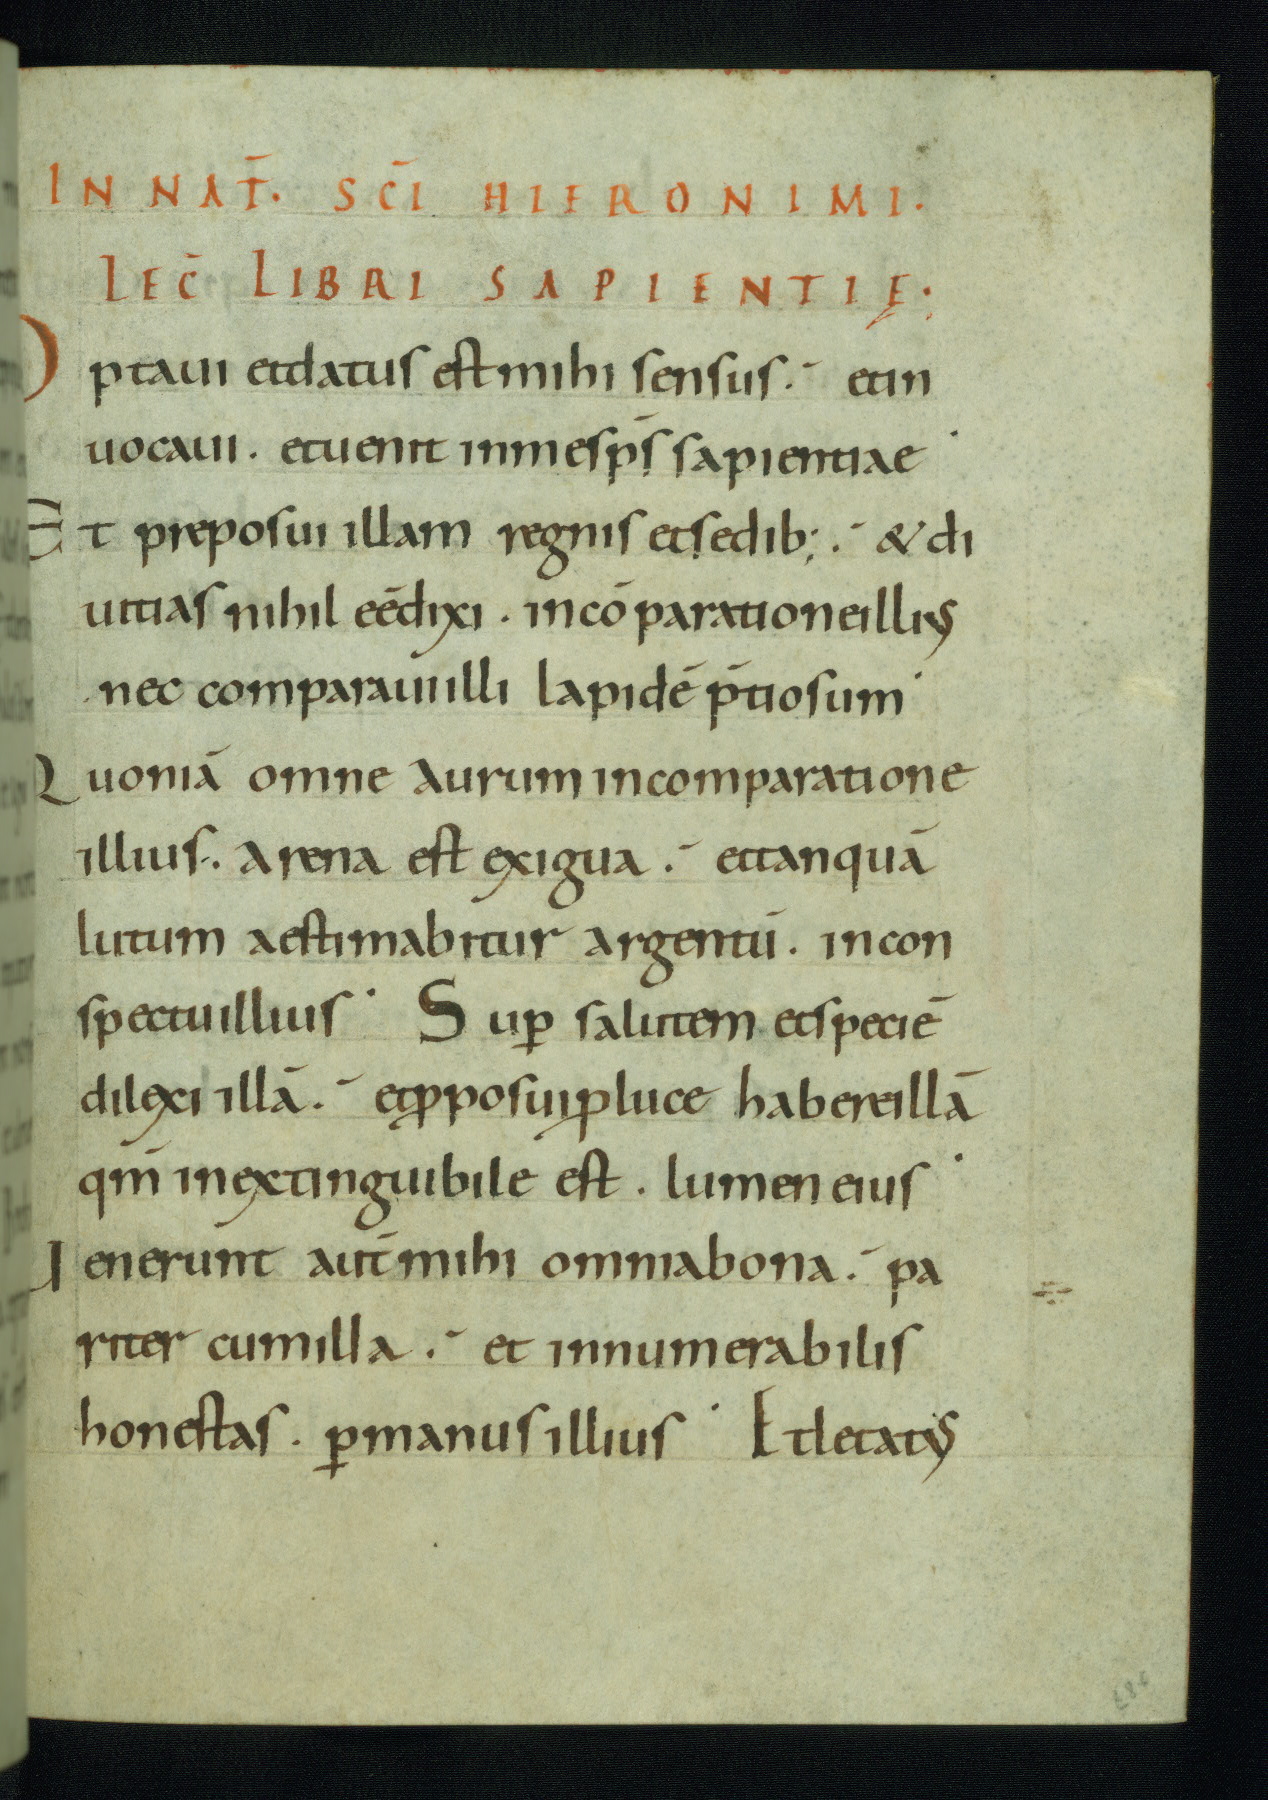 IN NAT̄. SC̄I HIERONIMI.
LEC̄ LIBRI SAPIENTIĘ.
Optaui et datus est mihi sensus. et in
uocaui. et uenit in me sp̄s sapientiae
Et preposui illam regnis et sedib; . & di
uitias nihil eē dixi. in cōparatione illius
nec comparaui illi lapidē p̄tiosum
Quoniā omne aurum in comparatione
illius. arena est exigua. et tanquā
lutum aestimabitur argentū. in con
spectu illius Sup̱ salutem et speciē
dilexi illā. et ꝓposui ꝓ luce habere illā
qm̄ inextinguibile est. lumen eius
Uenerunt aut̄ mihi omnia bona. pa
riter cum illa. et innumerabilis
honestas. ꝑ manus illius Et letatus